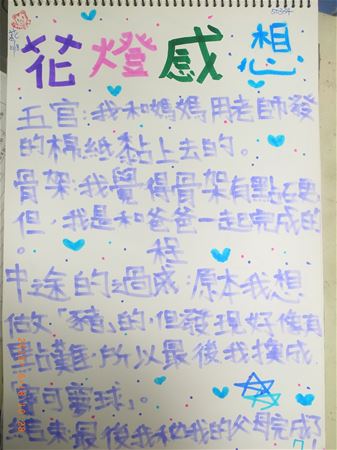 花燈感想
五官:我和媽媽用老師發
的棉紙黏上去的。
骨架:我覺得骨架有點
但,我是和爸爸一起完成的
。
程
中途的過成:原本我想
做「豬」的,但發現好像有
點難,所以最後我換成
可愛球」。
結束最後我和我的父母完成了